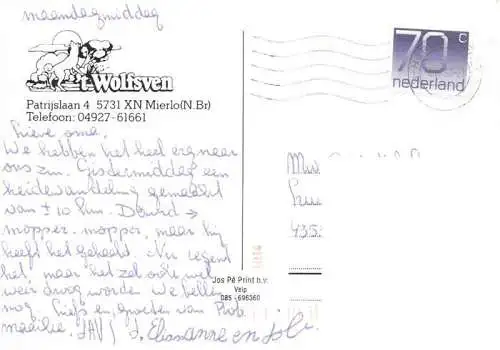 maandagmiddag
't Wolfsven
Patrijslaan 4 5731 XN Mierlo(N.Br)
Telefoon: 04927-61661
70 c
nederland
Lieve oma,
We hebben het heel erg naar
ons zin. Gistermiddag een
heidewandeling gemaakt
van ± 10 km. David →
mopper, mopper, maar hij
heeft het gehaald. Nu regent
het, maar het zal ook wel
weer droog worden. We bellen
nog. Liefs en groeten van Rob
Elisanne en
435
Jos Pé Print b.v.
Velp
085 - 696360